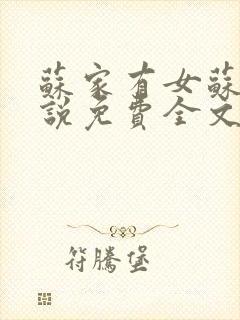 蘇家有女蘇
說免費全文
符騰堡